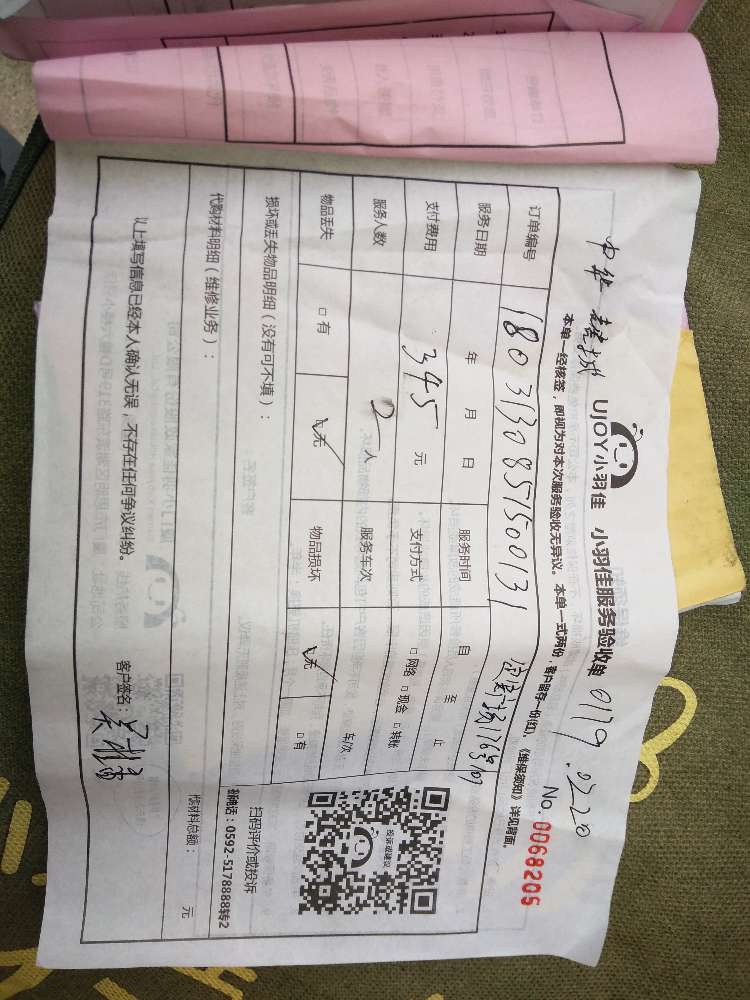 UJOY小羽佳 小羽佳服务验收单
No. 0068205
本单一经核签，即视为对本次服务验收无异议。本单一式两份，客户留存一份(红)，《维保须知》详见背面。
订单编号 1803130851500131
服务日期 年 月 日 服务时间 自 至 止
支付费用 345 元 支付方式 □ 网络 □ 现金 □ 转账
服务人数 2 人 服务车次 车次
物品丢失 □ 有 □ 无 物品损坏 □ 无 □ 有
损坏或丢失物品明细（没有可不填）：
扫码评价或投诉
投诉或建议
0592-5178888转2
代购材料明细（维修业务）：
代材料总额： 元
以上填写信息已经本人确认无误，不存在任何争议纠纷。
客户签名：